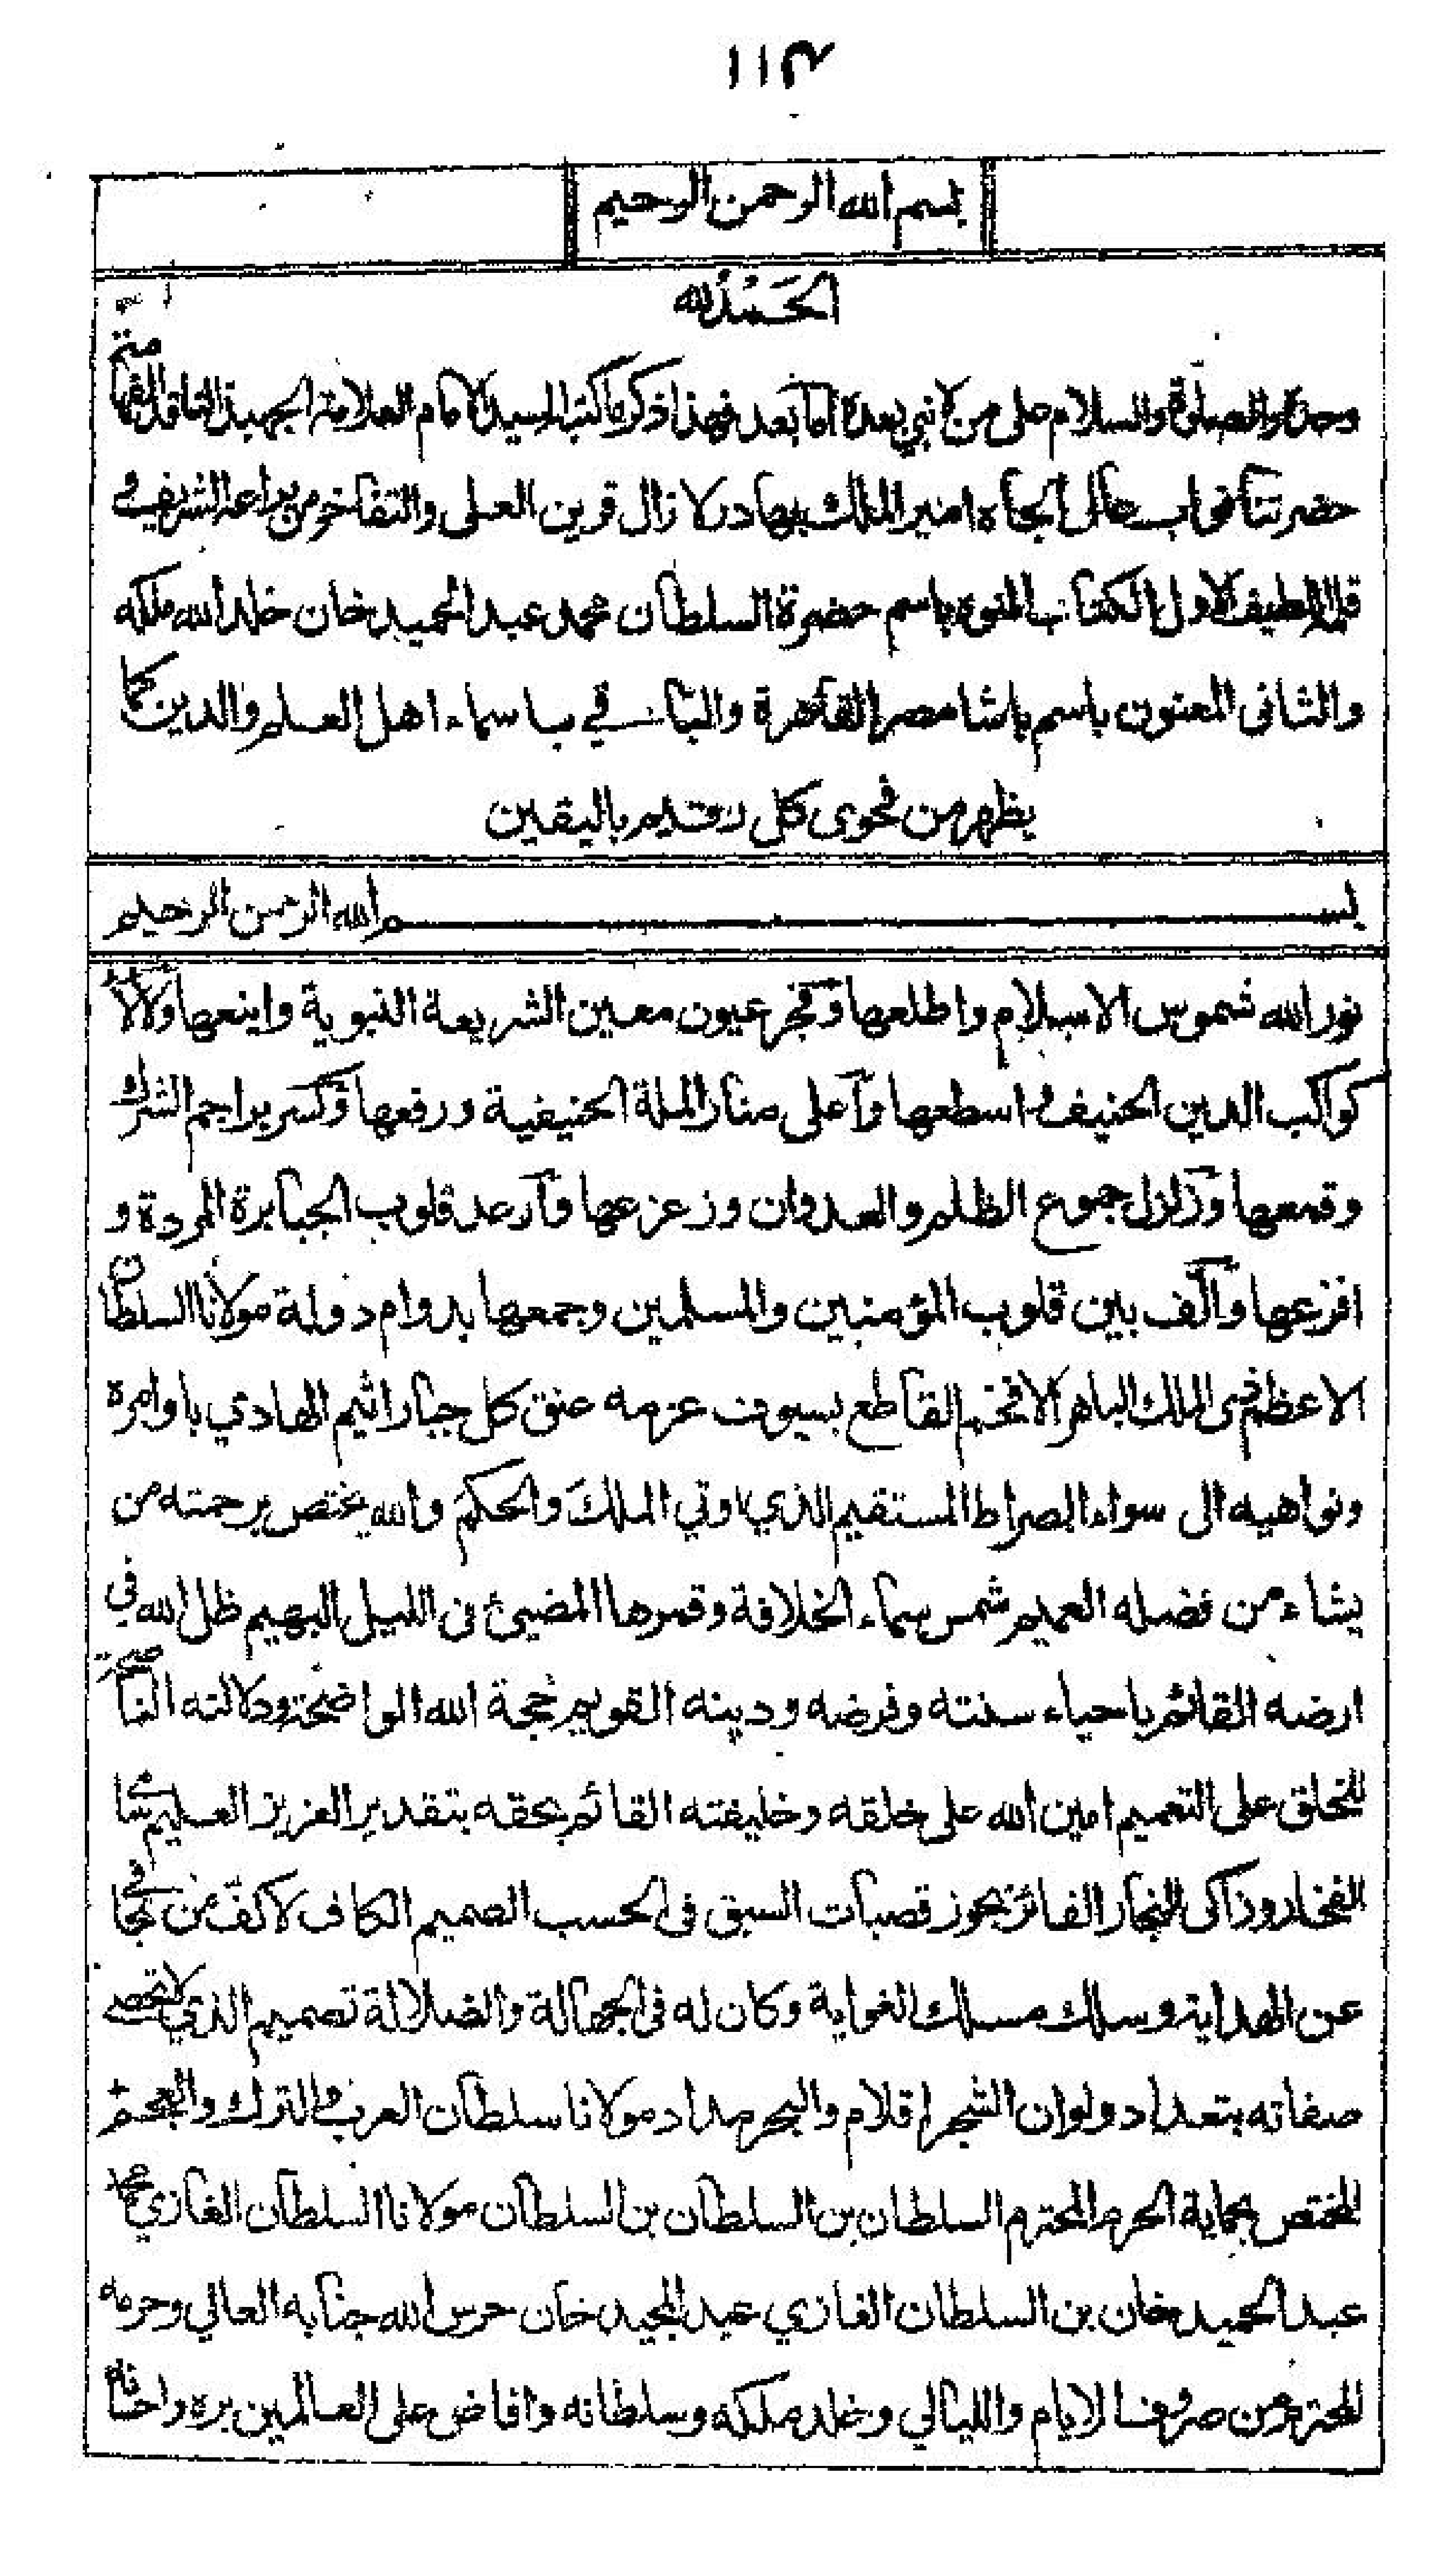 ١١٣
بسم الله الرحمن الرحيم
الحَمْدُ لله
وحده والصلوة والسلام على من لا نبي بعده اما بعد فهذا ذكر ما كتب السيد الامام العلامة الجهبذ الفهامة
حضرتنا نواب عالى الجاه امير الملك بهادر لا زال قرين العلى والتفاخر من يراعه الشريف في
الاول الكتاب باسم حضرة السلطان محمد عبد الحميد خان خلد الله ملكه
والثاني المعنون باسم باشا مصر القاهرة والباقي باسماء اهل العلم والدين كما
يظهر من فحوى كل رقيم باليقين
بسم الله الرحمن الرحيم
نور الله شموس الاسلام واطلعها وفجر عيون معين الشريعة النبوية وابنعها ولألأ
كواكب الدين الحنيف واسطعها وآعلى منار الملة الحنيفية ورفعها وكسر براجم الشرك
وقمعها وزلزل جموع الظلم والعدوان وزعزعها وآرعد قلوب الجبابرة المردة و
افزعها وآلف بين قلوب المؤمنين والمسلمين وجمعها بدوام دولة مولانا السلطان
الاعظم الملك الباهر الافخم القاطع بسيوف عزمه عنق كل جبار اثيم الهادي باوامره
ونواهيه الى سواء الصراط المستقيم الذي اوتي الملكَ والحكمَ والله يختص برحمته من
يشاء من فضله العميم شمس سماء الخلافة وقمرها المضيئ فى الليل البهيم ظل الله في
ارضه القائم باحياء سنته وفرضه ودينه القويم حجة الله الواضحة ودلالته الناصحة
للخلق على التعميم امين الله على خلقه وخليفته القائم بحقه بتقدير العزيز العليم سامي
الفخار وزاكى النجار الفائز بحوز قصبات السبق فى الحسب الصميم الكاف لاكف من تجافى
عن الهداية وسلك مسلك الغواية وكان له فى الجهالة والضلالة تصميم الذي لا تحصى
صفاته بتعداد ولو ان الشجر اقلام والبحر مداد مولانا سلطان العرب والترك والعجم
المختص بحماية الحرم المحترم السلطان بن السلطان بن السلطان مولانا السلطان الغازي محمد
عبد الحميد خان بن السلطان الغازي عبد المجيد خان حرس الله جنابه العالي وحرمه
المحترم من صروف الايام والليالي وخلد ملكه وسلطانه وافاض على العالمين بره واحسانه